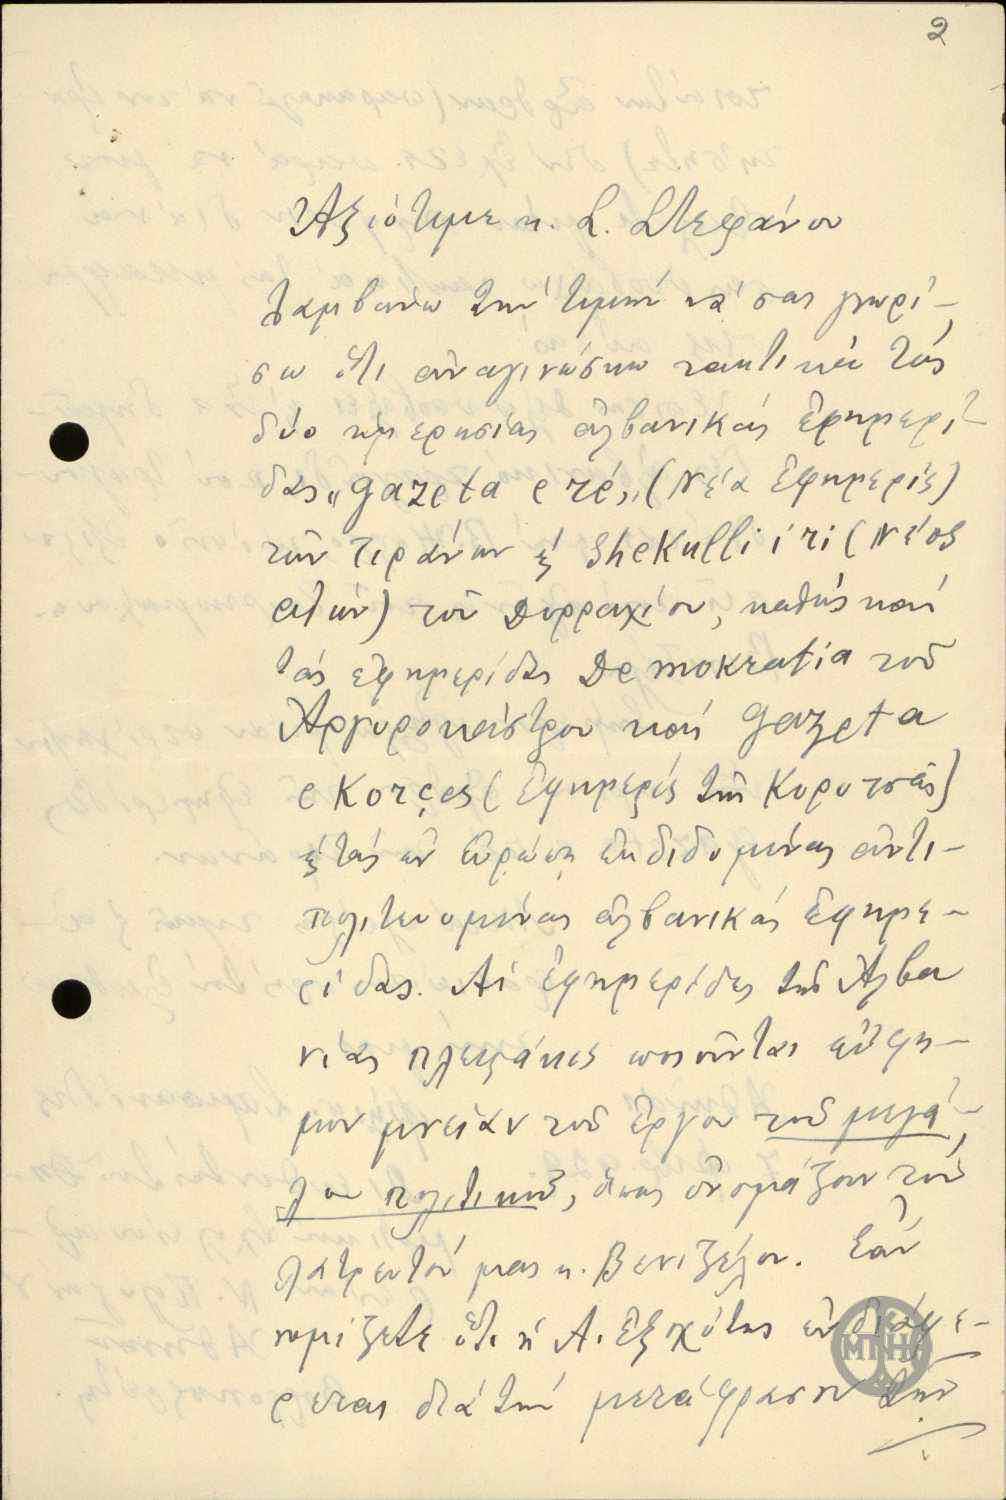 2
Ἀξιότιμε κ. Σ. Στεφάνου
Λαμβάνω τήν τιμήν νά σας γνωρί-
σω ὅτι ἀναγινώσκω τακτικά τάς
δύο ἡμερησίας ἀλβανικάς ἐφημερί-
δας „Gazeta e ré„ (Νέα Ἐφημερίς)
τῶν Τιράνων ἐ Shekulli i ri (Νέος
αἰών) τοῦ Δυρραχίου, καθώς καί
τάς ἐφημερίδας Demokratia τοῦ
Ἀργυροκάστρου καί Gazeta
e Korçes (Ἐφημερίς τῆς Κορυτσᾶς)
ἐ τάς ἐν Εὐρώπῃ ἐκδιδομένας ἀντι-
πολιτευομένας ἀλβανικάς ἐφημε-
ρίδας. Αἱ ἐφημερίδες τῆς Ἀλβα
νίας πλειστάκις ποιοῦνται εὔφη-
μον μνείαν τοῦ ἔργου τοῦ μεγά-
λου πολιτικοῦ, ὅπως ὀνομάζουν τόν
λατρευτόν μας κ. Βενιζέλον. Ἐάν
νομίζετε ὅτι ἡ Α. Ἐξοχότης ἐνδιαφέ-
ρεται διά τήν μετάφρασιν τῶν
ΜΠΗ